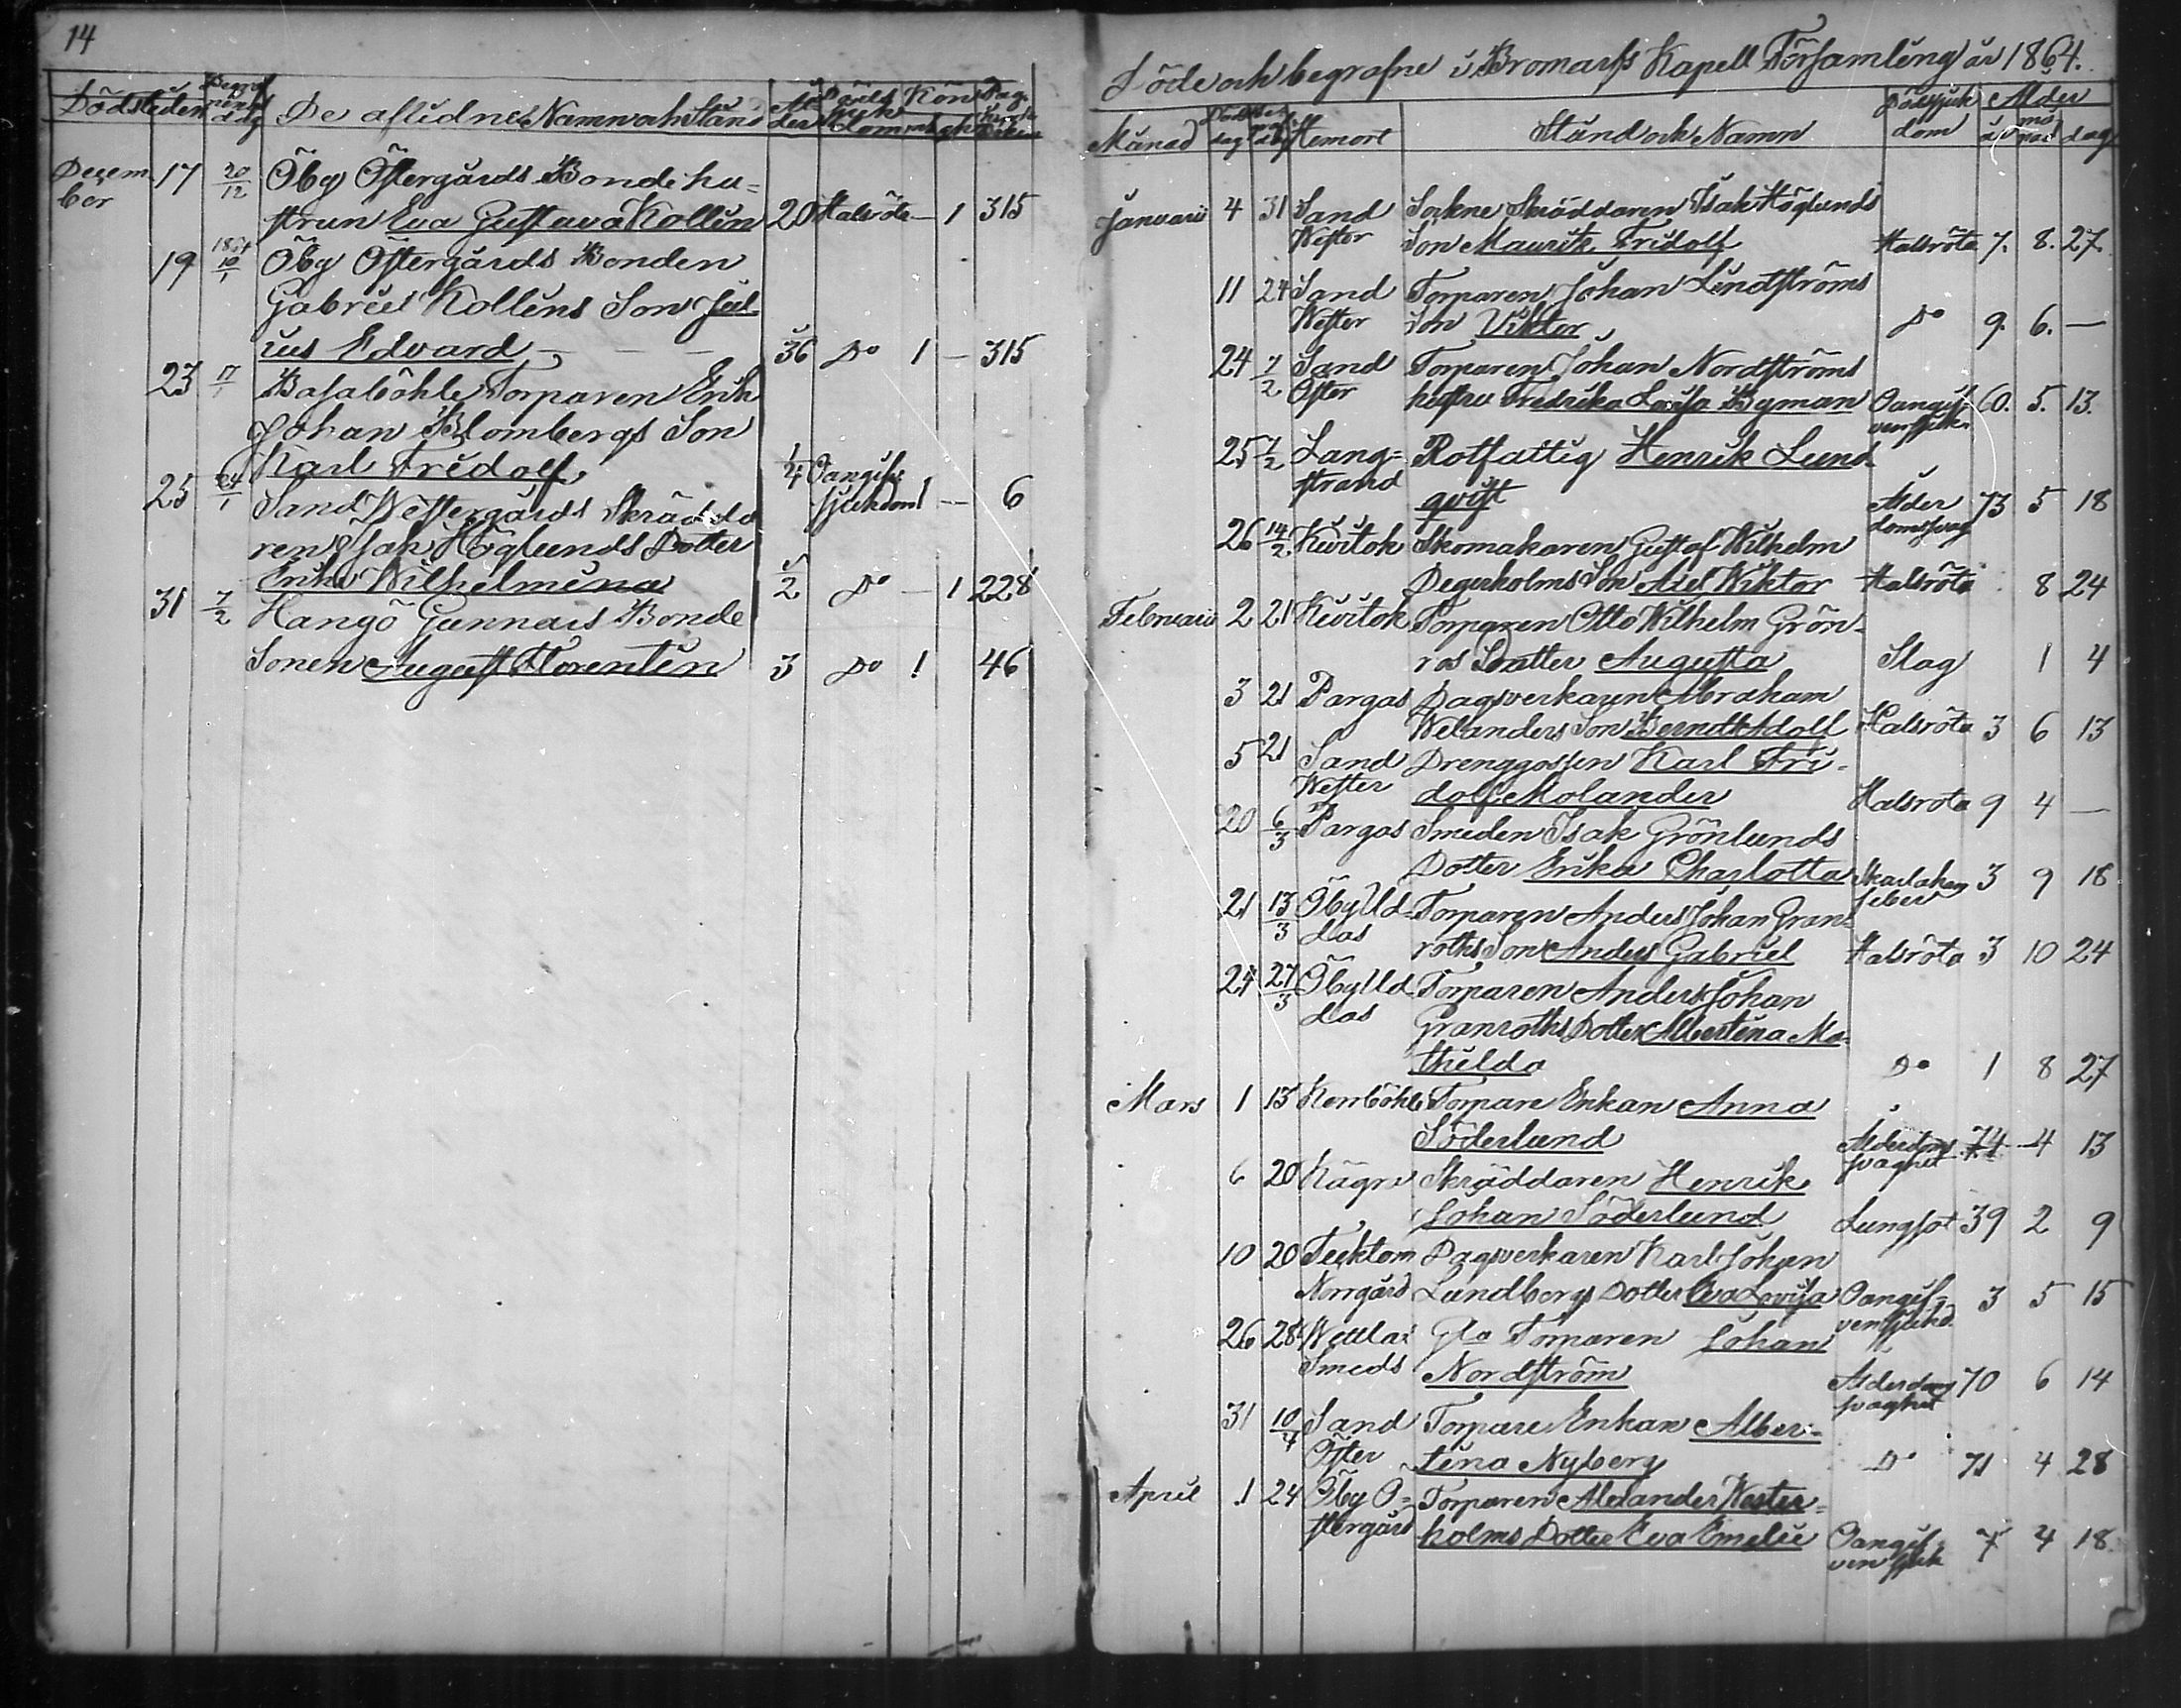 14
Dödstiden Begraf nings dag De aflidnes Namn och Stånd Ål der Döds sjuk dom Kön m qk Pag. i Kyrko Boken
Decem ber 17 20/12 Öby Östergårds Bonde hu=
strun Eva Gustava Kollin 20 Halsröta — 1 315
19 1864 10/1 Öby Östergårds Bonden
Gabriel Kollins Son Jul
ius Edvard — — — 36 Do 1 — 315
23 17/1 Basaböhle Torparen Erik
Johan Blombergs Son
Karl Fridolf 1/4 Oangifv: sjukdom 1 — 6
25 24/1 Sand Westergårds Skrädda
ren Isak Höglunds Dotter
Erika Wilhelmina 5/2 Do — 1 228
31 7/2 Hangö Gunnars Bonde
Sonen August Florentin 3 Do 1 46
Döde och begrafne i Bromarfs Kapell Församling år 1864.
Månad Döds dag Begr. dag Hemort Stånd och Namn Dödssjuk dom Ålder år må nad dag
Januari 4 31 Sand Sockne Skräddaren Isak Höglunds
Wester Son Maurits Fridolf Halsröta 7. 8. 27.
11 24 Sand Torparen Johan Lindströms
Wester Son Viktor Do 9. 6. —
24 7/2 Sand Torparen Johan Nordströms
Öster hustru Fredrika Lovisa Byman Oangif- ven sjuk. 60. 5. 13.
25 7/2 Lång= Rotfattig Henrik Lund
strand qvist Ålder domssvag 73 5 18
26 14/2 Kivitok Skomakaren Gustof Wilhelm
Degerholms Son Axel Wiktor Halsröta 8 24
Februari 2 21 Kivitok Torparen Otto Wilhelm Grön-
ros Dotter Augusta Slag 1 4
3 21 Pargas Dagsverkaren Abraham
Welanders Son Berndt Adolf Halsröta 3 6 13
5 21 Sand Drenggossen Karl Fri-
Wester dolf Molander Halsrota 9 4 —
20 6/3 Pargas Smeden Isak Grönlunds
Dotter Erika Charlotta Skarlakans feber 3 9 18
21 13/3 Öby Ud- Torparen Anders Johan Gran-
das roths Son Anders Gabriel Halsröta 3 10 24
24 27/3 Öby Ud Torparen Anders Johan
das Granroths Dotter Albertina Ma-
thilda Do 1 8 27
Mars 1 13 Korrböhle Torpare Enkan Anna
Söderlund Ålderdoms svaghet 74 4 13
6 20 Kägra Skräddaren Henrik
Johan Söderlund Lungsot 39 2 9
10 20 Tecktom Dagsverkaren Karl Johan
Norrgård Lundbergs Dotter Eva Lovisa Oangif- ven sjukd. 3 5 15
26 28 Wettlax Gla Torparen Johan
Smeds Nordström Ålderdoms svaghet 70 6 14
31 10/4 Sand Torpare Enkan Alber-
Öster tina Nyberg Do 71 4 28
April 1 24 Öby Ö= Torparen Alexander Wester-
stergård holms Dotter Eva Emelie Oangif- ven sjuk 7 4 18